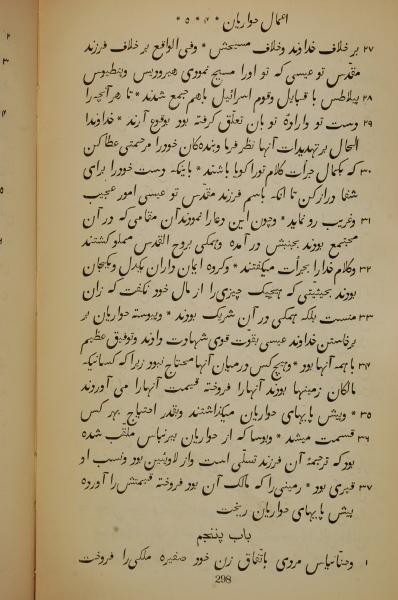 اعمال حواریان * ۴ * ۵ *
۲۷ بر خلاف خداوند و خلاف مسیحش * و فی الواقع بر خلاف فرزند
مقدّس تو عیسی که تو اورا مسیح نمودی هیرودیس و پنطیوس
۲۸ پیلاطس با قبایل و قوم اسرائیل باهم جمع شدند * تا هر آنچه را
۲۹ دست تو و ارادهٔ تو بآن تعلّق گرفته بود بوقوع آرند * خداوندا
الحال بر تهدیدات آنها نظر فرما و بندهگان خودرا مرحمتی عطا کن
۳۰ که بکمال جرأت کلام تورا گویا باشند * باینکه دست خودرا برای
شفا دراز کن تا آنکه باسم فرزند مقدّس تو عیسی امور عجیب
۳۱ و غریب رو نماید * و چون این دعارا نمودند آن مقامی که در آن
مجتمع بودند بجنبش در آمده و همگی بروح القدس مملو گشتند
۳۲ و کلام خدارا بجرأت میگفتند * و گروه ایمان داران یکدل و یکجان
بودند بحیثیتی که هیچیک چیزی را از مال خود نگفت که زان
۳۳ منست بلکه همگی در آن شریک بودند * و پیوسته حواریان بر
برخاستن خداوند عیسی بقوّت قوی شهادت دادند و توفیق عظیم
۳۴ با همه آنها بود * و هیچ کس درمیان آنها محتاج نبود زیرا که کسانیکه
مالکان زمینها بودند آنهارا فروخته قیمت آنهارا می آوردند
۳۵ * و پیش پایهای حواریان میگذاشتند و بقدر احتیاج بهر کس
۳۶ قسمت میشد * و یوسا که از حواریان ببرنباس ملقّب شده
بود که ترجمهٔ آن فرزند تسلّی است و از لاویئین بود و نسب او
۳۷ قبری بود * زمینی را که مالک آن بود فروخته قیمتش را آورده
پیش پایهای حواریان ریخت
باب پنجم
۱ و حنّانیاس مردی باتّفاق زن خود صفیره ملکی را فروخت
298